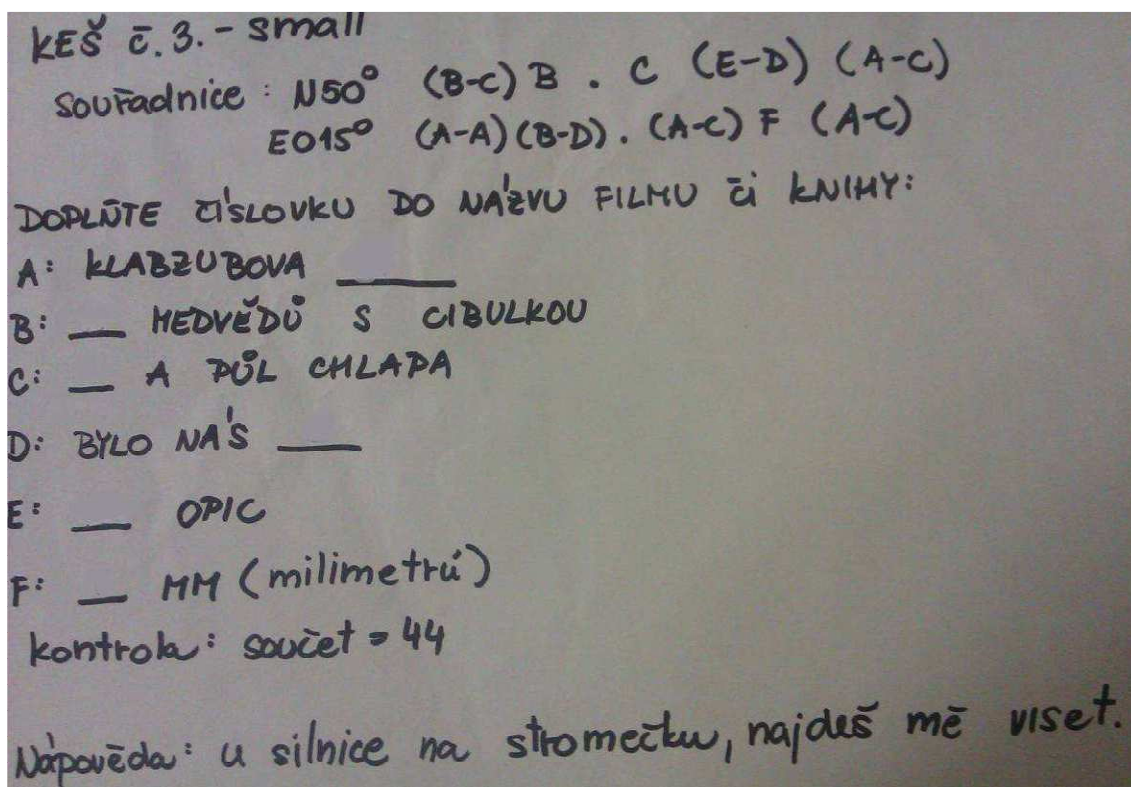 KEŠ č. 3. - small
souřadnice : N50° (B-C) B . C (E-D) (A-C)
E015° (A-A) (B-D) . (A-C) F (A-C)
DOPLŇTE ČÍSLOVKU DO NÁZVU FILMU či KNIHY:
A: KLABZUBOVA ____
B: __ MEDVĚDŮ S CIBULKOU
C: __ A PŮL CHLAPA
D: BYLO NÁS ___
E: __ OPIC
F: __ MM (milimetrů)
kontrola: součet = 44
Nápověda: u silnice na stromečku, najdeš mě viset.